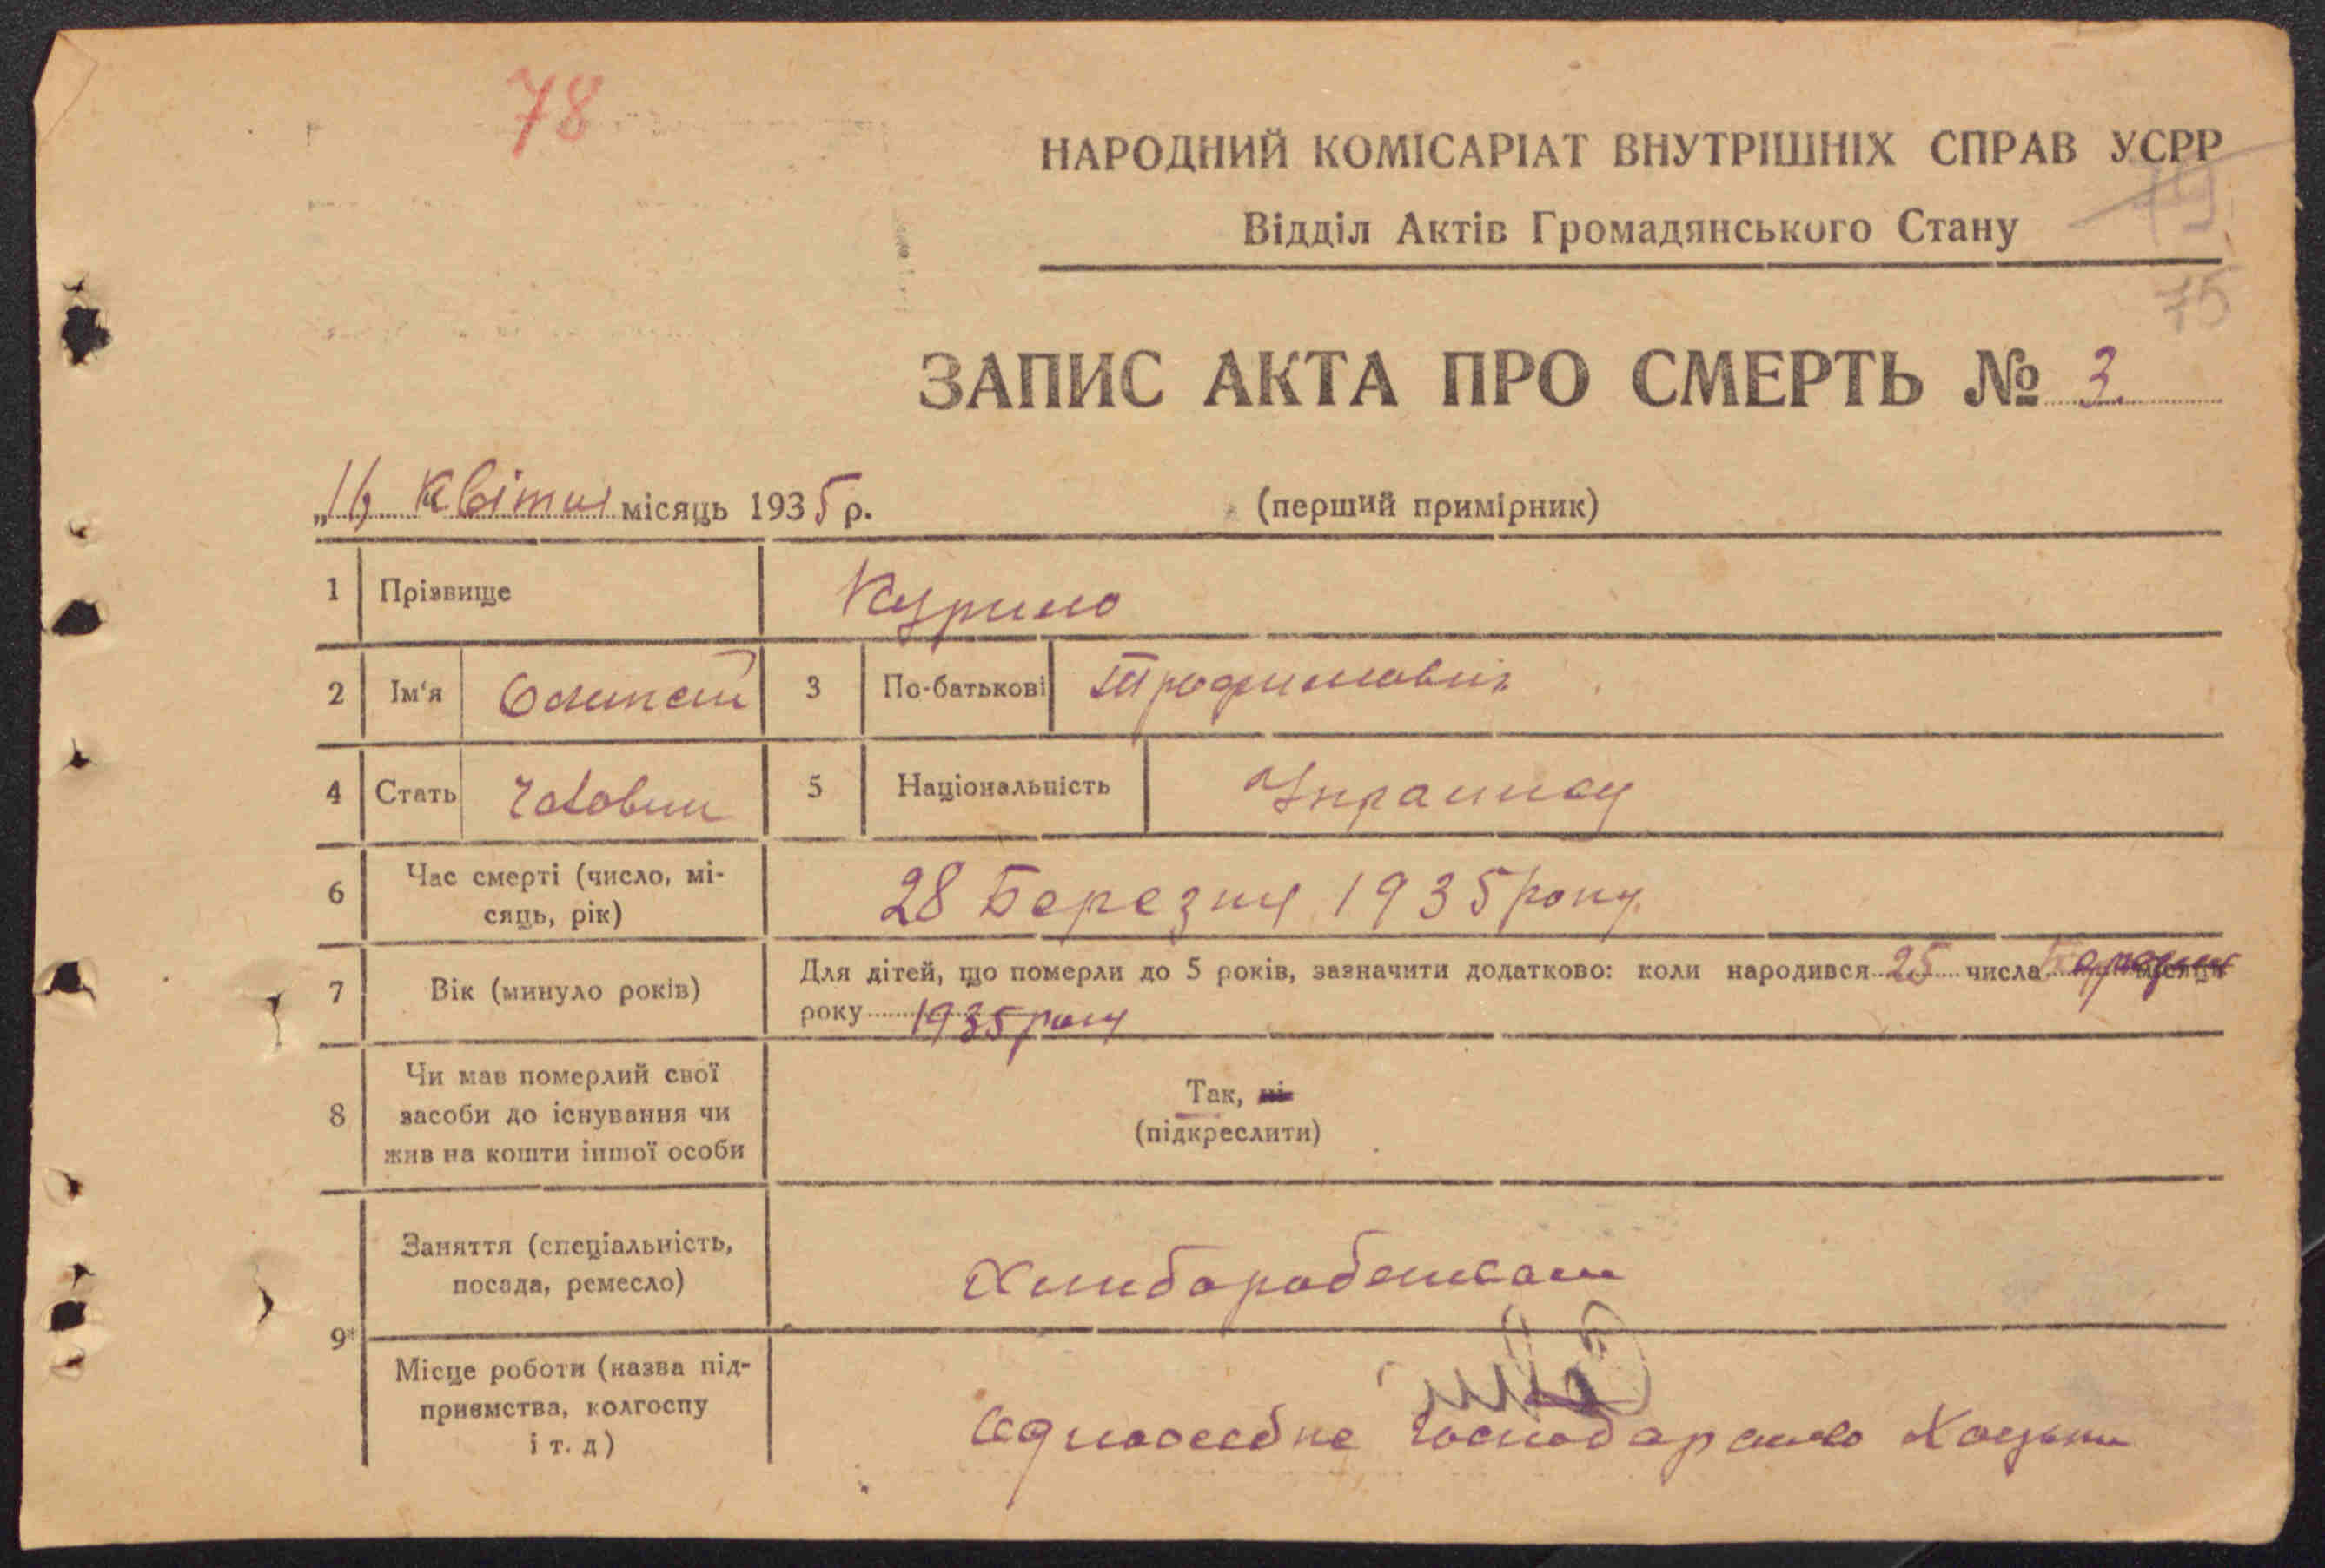 78
НАРОДНИЙ КОМІСАРІАТ ВНУТРІШНІХ СПРАВ УСРР
Відділ Актів Громадянського Стану
75
ЗАПИС АКТА ПРО СМЕРТЬ № 3
„16 квітня місяць 1935 р.
(перший примірник)
1 Прізвище Курило
2 Ім'я 3 По-батькові Трофимович
4 Стать Чоловіч 5 Національність Українец
6 Час смерті (число, мі-
сяць, рік) 28 Березня 1935 року
7 Вік (минуло років) Для дітей, що померли до 5 років, зазначити додатково: коли народився 25 числа Березня місяця
року 1935 року
8 Чи мав померлий свої
засоби до існування чи
жив на кошти іншої особи
Так, ні
(підкреслити)
9 Заняття (спеціальність,
посада, ремесло) Хлиборобством
Місце роботи (назва під-
приємства, колгоспу
і т. д) Одноосебне господарство